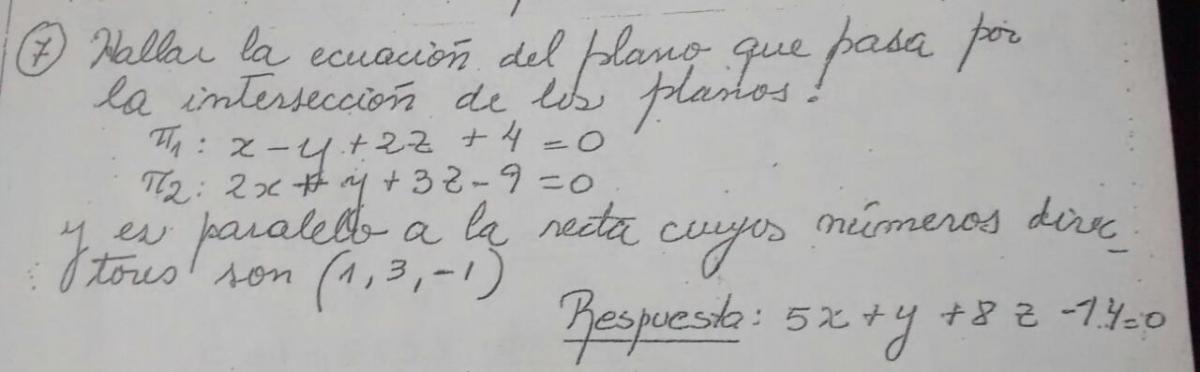 ⑦ Hallar la ecuación del plano que pasa por
la intersección de los planos:
π₁: x - y + 2z + 4 = 0
π₂: 2x + y + 3z - 9 = 0
y es paralelo a la recta cuyos números direc_
tores son (1, 3, -1)
Respuesta: 5x + y + 8z - 14 = 0